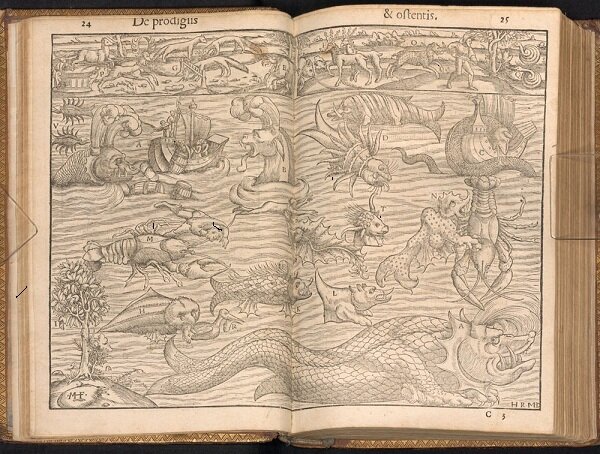 24
De prodigiis
& ostentis.
25
G
E
O
A
B
D
M
T
L
H
E
A
MHF.
HRMD
C 3